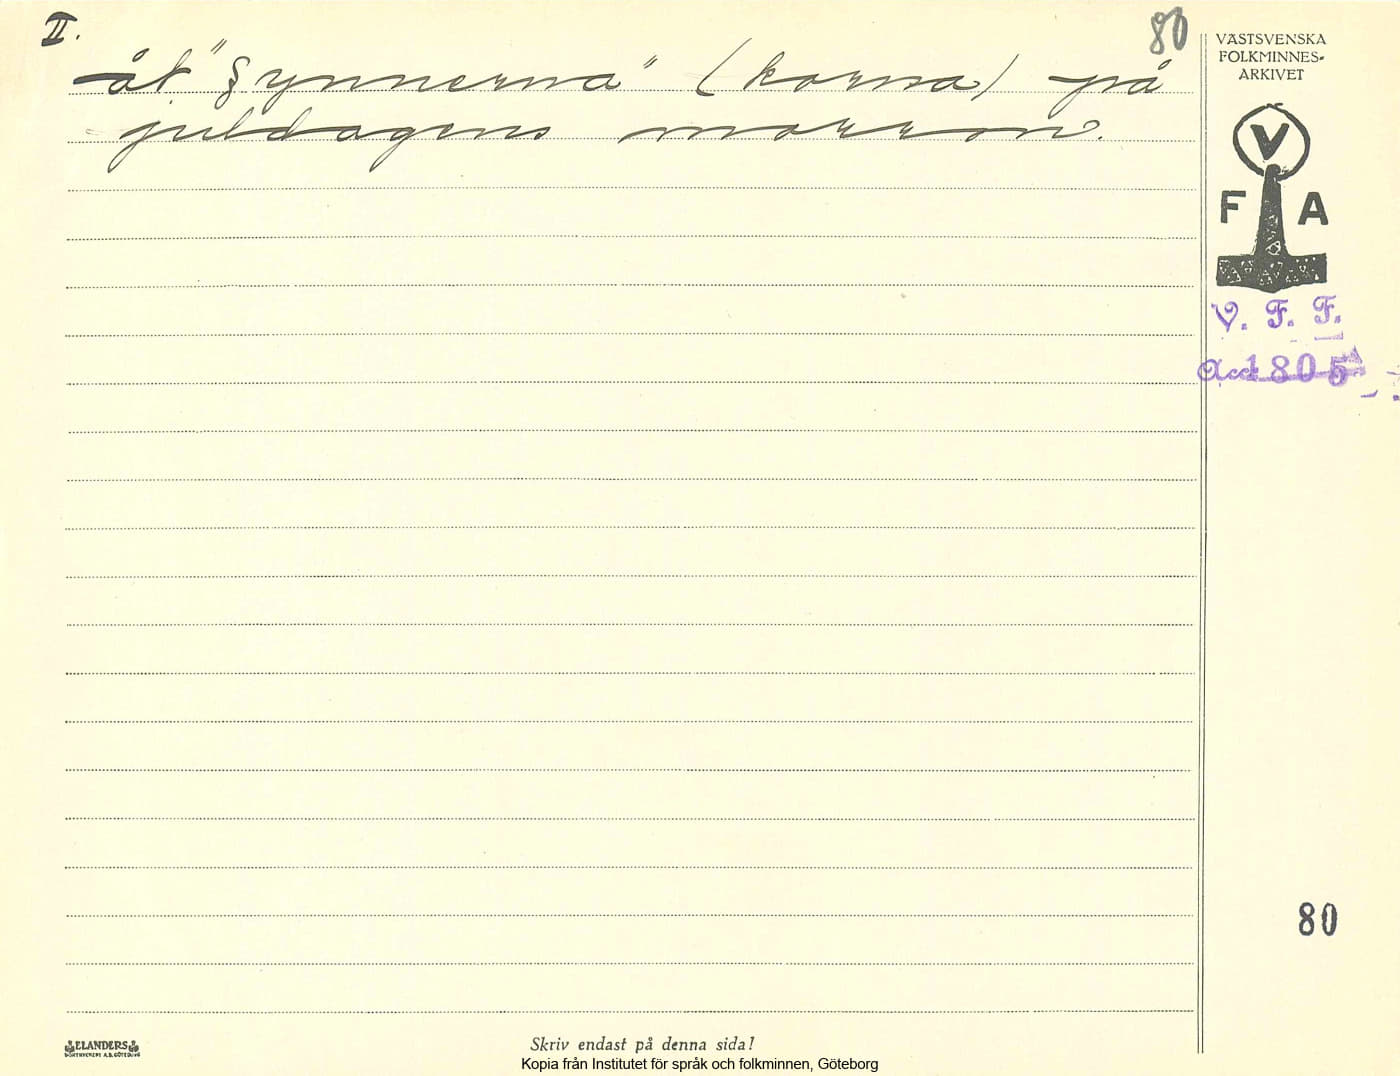 II.
80
åt "gynnerna" (korna) på
juldagens morron.
VÄSTSVENSKA
FOLKMINNES-
ARKIVET
V
F A
V. F. F.
Acc 1805
80
ELANDERS
BOKTRYCKERI A.B. GÖTEBORG
Skriv endast på denna sida!
Kopia från Institutet för språk och folkminnen, Göteborg